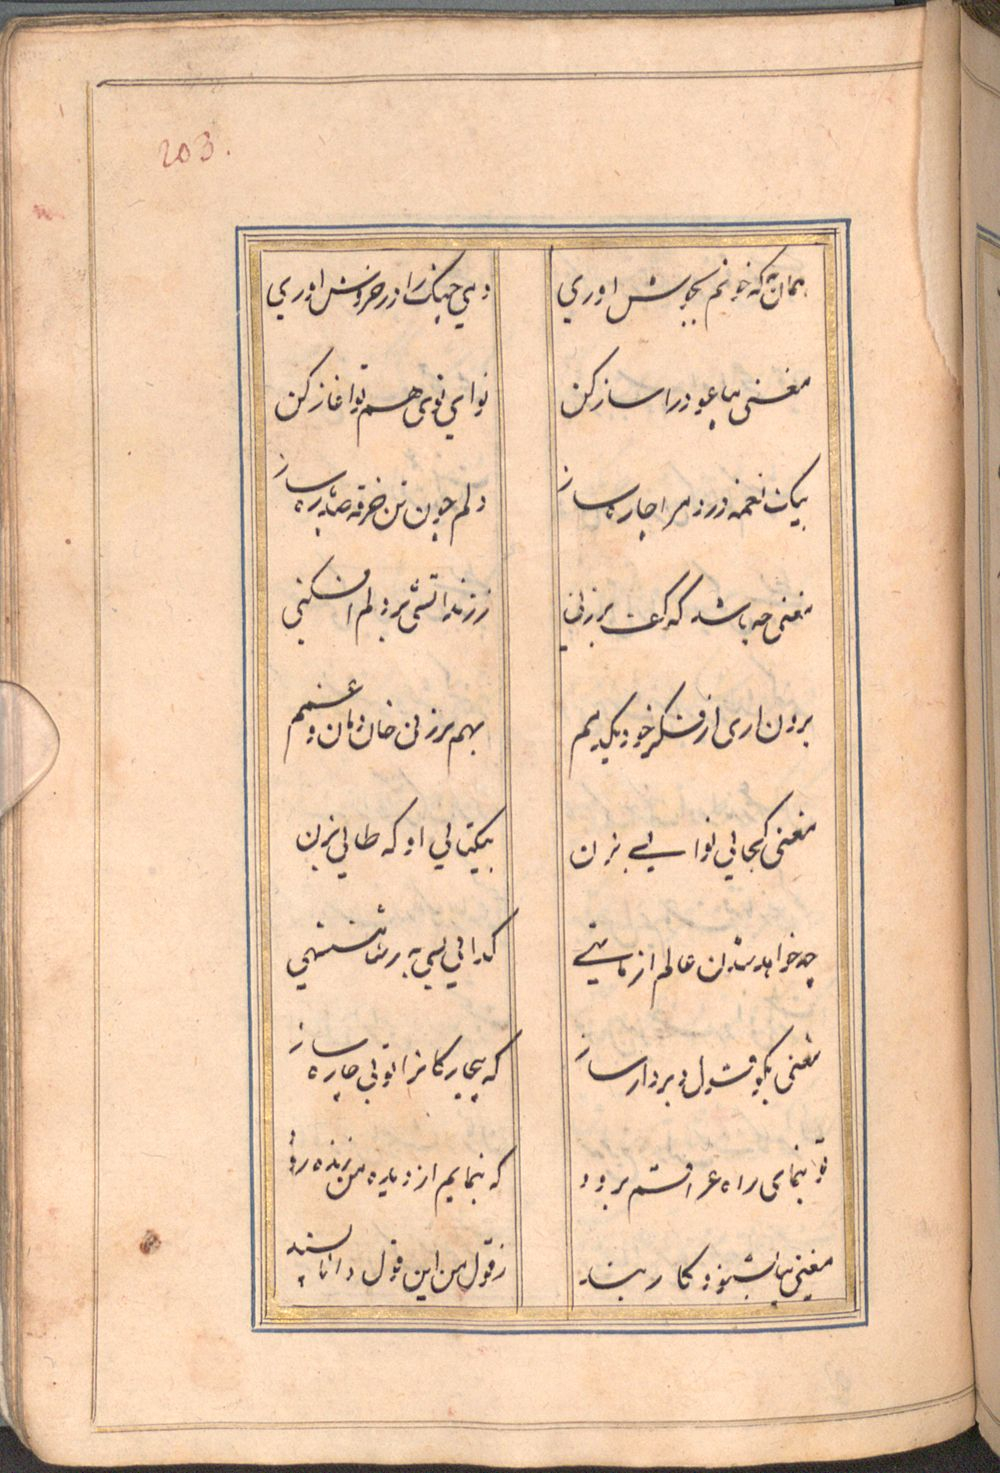 203.
همان به که خونم بجوش اوری
دمی چنک را در خروش اوری
مغنی بیا عود را ساز کن
نوای نوی هم تو اغاز کن
بیک نغمه درد مرا چاره ساز
دلم چون تن خرقه صد پاره ساز
مغنی چه باشد که کف برزنی
ززند اتشی بر دلم افکنی
برون اری از فکر خود یکدمم
بهم برزنی خان و مان و غمم
مغنی کجایی نوایی بزن
بیکتایی او که طایی بزن
چو خواهد شدن عالم از ما تهی
کدایی بسی به ز شاهنشهی
مغنی بکو قول و بردار ساز
که بیچارکانرا تویی چاره ساز
تو بنمای راه عراقم برود
که بنمایم از دیده من زنده رود
مغنی بیا بشنو و کار بند
ز قول من این قول دانا پسند